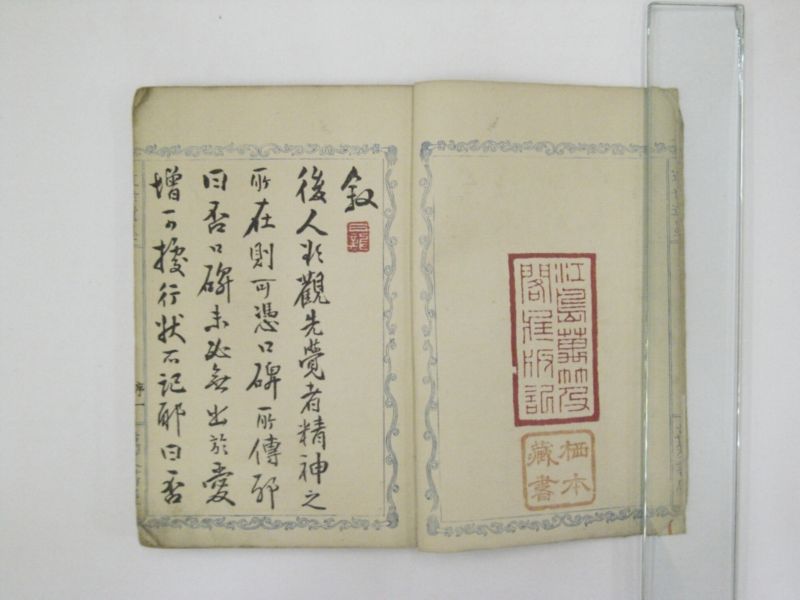 江島萬笈
閣版記
栖本
藏書
叙
後人欲觀先覺者精神之
所在則可憑口碑所傳耶
曰否口碑未必無出於愛
憎可據行状所記耶曰否
序一